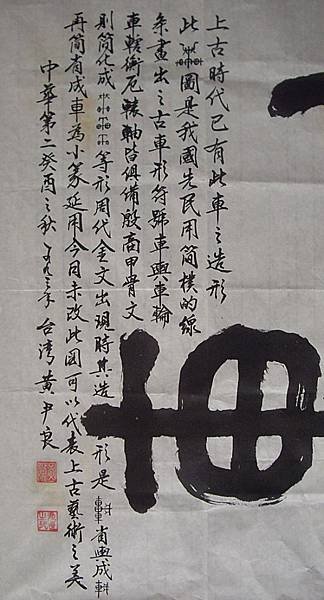 上古時代已有此車之造形
此圖是我國先民用簡樸的線
条畫出之古車形符號車輿車輪
車轄衡厄轅軸皆俱備殷商甲骨文
則簡化成等形周代金文出現時其造形是省輿成
再簡省成車為小篆延用今日未改此圖可以代表上古藝術之美
中華第二癸酉之秋一九九三年台灣黃尹良